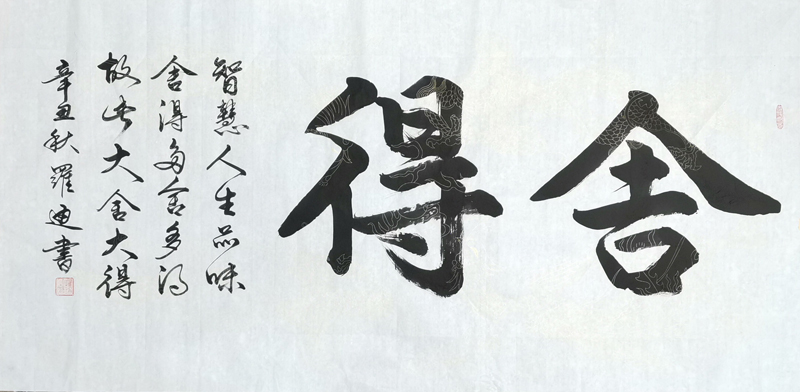 舍得
智慧人生品味
舍得多舍多得
故此大舍大得
辛丑秋羅迪書